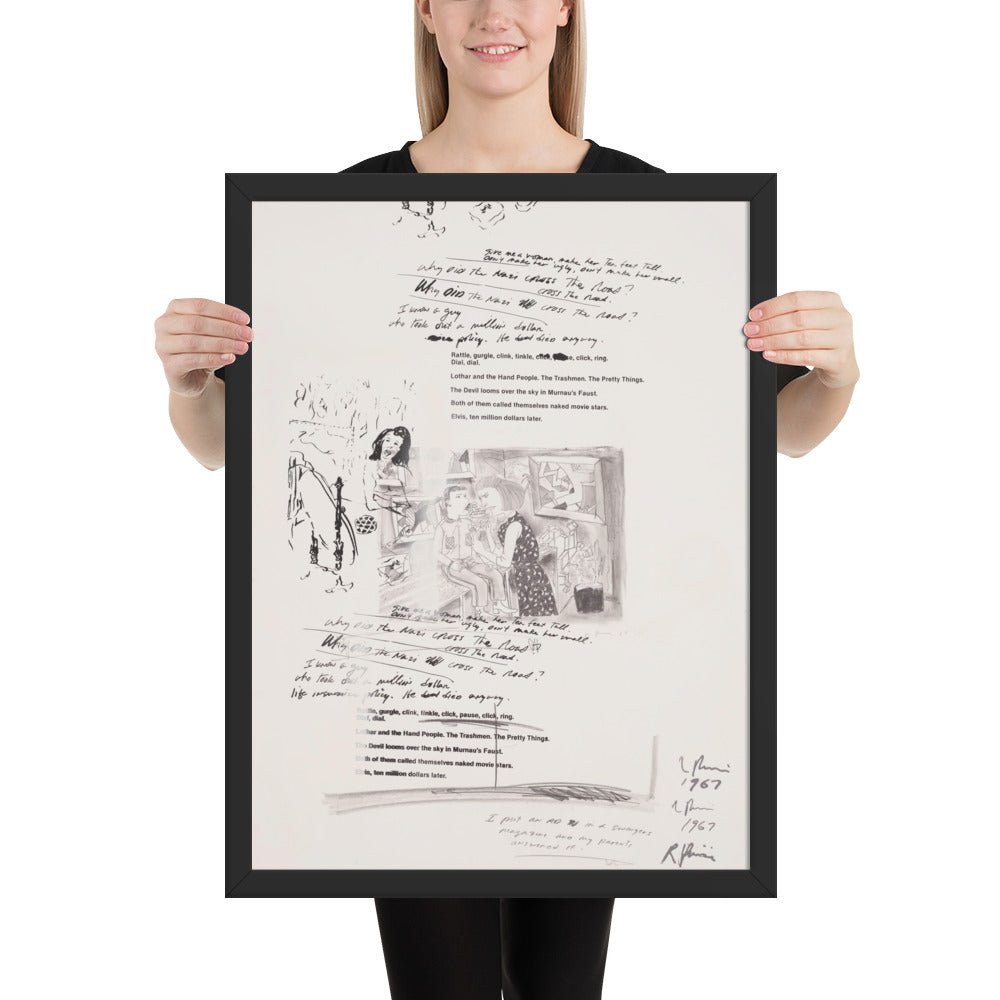 Give me a woman, make her Ten feet Tall.
Don't make her ugly, don't make her small.
Why DID the Nazi CROSS The Road?
CROSS the Road.
Why DID The Nazi CROSS The Road?
I know a guy
who took out a million dollar
policy. He died anyway.
Rattle, gurgle, clink, tinkle, click, pause, click, ring.
Dial, dial.
Lothar and the Hand People. The Trashmen. The Pretty Things.
The Devil looms over the sky in Murnau's Faust.
Both of them called themselves naked movie stars.
Elvis, ten million dollars later.
Give me a woman, make her Ten feet Tall.
Don't make her ugly, don't make her small.
Why DID the Nazi CROSS The Road?
CROSS The Road.
Why DID The Nazi CROSS The Road?
I know a guy
who took out a million dollar
life insurance policy. He died anyway.
Rattle, gurgle, clink, tinkle, click, pause, click, ring.
Dial, dial.
Lothar and the Hand People. The Trashmen. The Pretty Things.
The Devil looms over the sky in Murnau's Faust.
Both of them called themselves naked movie stars.
Elvis, ten million dollars later.
1967
1967
I put an AD in a swingers
magazine and my parents
answered it.